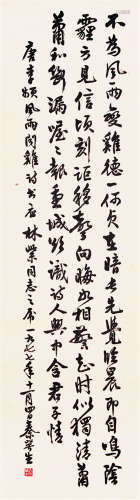 不為風雨變雞德一何貞在暗長先覺臨晨即自鳴陰
霾方見信頃刻詎移聲向晦如相警知時似獨清蕭
蕭和斷漏喔喔報重城欲識詩人興中含君子情
唐李頻風雨聞雞詩書應 林業同志之屬 一九七七年十一月四 秦咢生